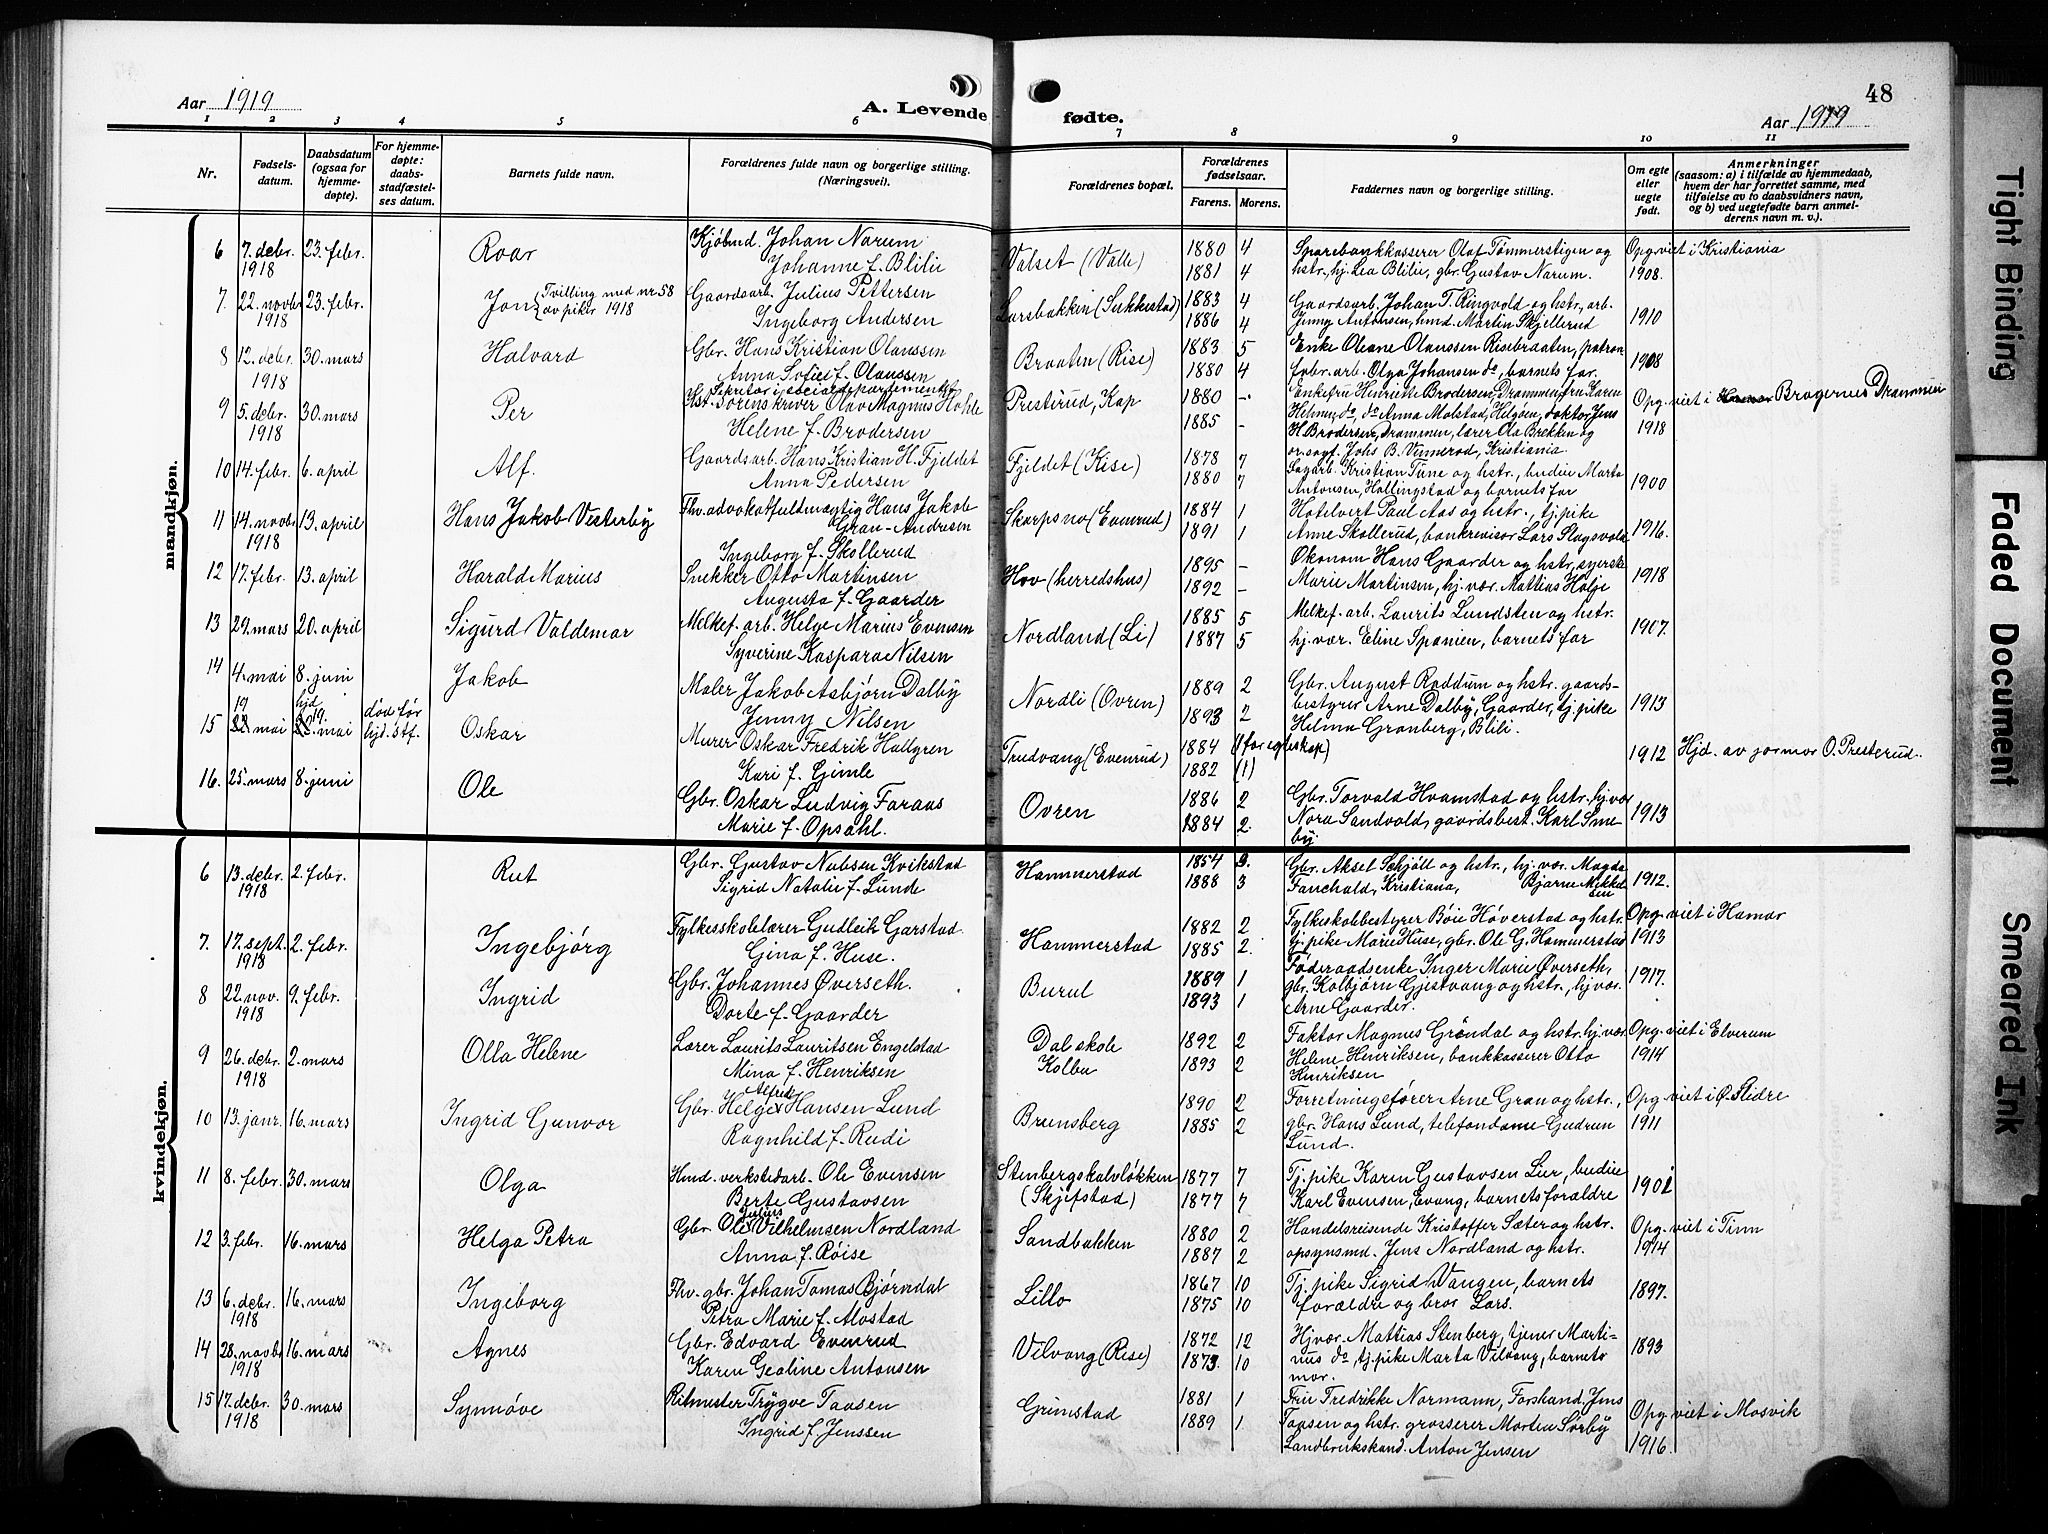 Aar 1919
A. Levende fødte.
48
Aar 1919
1 2 3 4 5 6 7 8 9 10 11
Nr.
Fødsels-
datum.
Daabsdatum
(ogsaa for
hjemme-
døpte).
For hjemme-
døpte:
daabs-
stadfæstel-
ses datum.
Barnets fulde navn.
Forældrenes fulde navn og borgerlige stilling.
(Næringsvei).
Forældrenes bopæl.
Forældrenes
fødselsaar.
Farens. Morens.
Faddernes navn og borgerlige stilling.
Om egte
eller
uegte
født.
Anmerkninger
(saasom: a) i tilfælde av hjemmedaab,
hvem der har forrettet samme, med
tilføielse av to daabsvidners navn,
og b) ved uegtefødte barn anmel-
derens navn m. v.).
mandkjøn.
6 7. debr. 1918 23. febr. Roar
Kjøbmd. Johan Narum
Johanne f. Blilie
Valset (Valle)
1880 4
1881 4
Sparebankkasserer Olaf Tømmerstigen og
hstr., hj. Lea Blilie, gbr. Gustav Narum.
Opg. viet i Kristiania
1908.
7 22. novbr 1918 23. febr. Jon {Tvilling med nr 58
av piker 1918
Gaardsarb. Julius Pettersen
Ingeborg Andersen
Larsbakken (Sukkestad)
1883 4
1886 4
Gaardsarb. Johan T. Ringvold og hstr., arb.
Jenny Antonsen, hmd. Martin Skjellerud
1910
8 12. debr. 1918 30. mars Halvard
Gbr. Hans Kristian Olaussen
Anna Sofie f. Olaussen
Braaten (Rise)
1883 5
1880 4
Enke Oleane Olaussen Risebraaten, patron
fabr. arb. Olga Johansen do, barnets far.
1908
9 5. debr. 1918 30. mars Per
Sekretær i socialdepartementet
Kst. Sorenskriver Olav Magnus Hohle
Helene f. Brodersen
Presterud, Kap
1880 -
1885 -
Enkefru Henriette Brodersen, Drammen, fru Karen
Helmen, do, do Anna Molstad, Helgøen, doktor Jens
H Brodersen, Drammen, lærer Ola Brekken og
or. sagf. Johs B. Vinnerod, Kristiania
Opg. viet i Bragernes Drammen
1918
10 14. febr. 6. april Alf.
Gaardsarb. Hans Kristian H. Fjeldet
Anna Pedersen
Fjeldet (Kise)
1878 7
1880 7
Sagarb. Kristian Tune og hstr., budeie Marta
Antonsen, Hallingstad og barnets far
1900
11 14. novbr 1918 13. april Hans Jakob Vesterby
Fhv. advokatfuldmægtig Hans Jakob
Gran-Andresen
Ingeborg f. Skollerud
Skarpsno (Evenrud)
1884 1
1891 1
Hotelvert Paul Aas og hstr., tj. pike
Anne Skollerud, bankrevisor Lars Slagsvold
1916.
12 17. febr. 13. april Harald Marius
Snekker Otto Martinsen
Augusta f. Gaarder
Hov (herredshus)
1895 -
1892 -
Økonom Hans Gaarder og hstr., syerske
Marie Martinsen, hj. vær. Mattias Holje
1918
13 29. mars 20. april Sigurd Valdemar
Melkef. arb. Helge Marius Evensen
Syverine Kaspara Nilsen
Nordland (Li)
1885 5
1887 5
Melkef. arb. Laurits Lundsten og hstr.
hj. vær. Eline Spanien, barnets far
1907.
14 4. mai 8. juni Jakob
Maler Jakob Asbjørn Dalby
Jenny Nilsen
Nordli (Ovren)
1889 2
1893 2
Gbr. August Raddum og hstr. gaards-
bestyrer Arne Dalby, Gaarder, tj. pike
Helma Granberg, Blili.
1913
15 19 mai hjd. 19. mai død før hjd. stf. Oskar
Murer Oskar Fredrik Hallgren
Kari f. Gimle
Trudvang (Evenrud)
1884 (1 før egteskap)
1882 (1)
1912
Hjd. av jormor O. Presterud.
16. 25. mars 8. juni Ole
Gbr. Oskar Ludvig Faraas
Marie f. Opsahl.
Ovren
1886 2
1884 2.
Gbr. Torvald Hvamstad og hstr. hj. vær
Nora Sandvold, gaardsbest. Karl Sme
by.
1913
kvindekjøn.
6 13. debr. 1918 2. febr. Rut
Gbr. Gustav Nielsen Kvikstad
Sigrid Natalie f. Lunde
Hammerstad
1854 3.
1888 3
Gbr. Aksel Schjøll og hstr., hj. vær. Magda
Fanchald, Kristiana, Bjarne Mikkel
sen
1912.
7. 17. sept. 1918 2. febr. Ingebjörg
Fylkesskolelærer Gudleik Garstad
Gina f. Huse.
Hammerstad
1882 2
1885 2.
Fylkeskolbestyrer Bøie Høverstad og hstr
tj. pike Marie Huse, gbr. Ole G. Hammerstad
Opg viet i Hamar
1913
8 22. nov. 1918 9. febr. Ingrid
Gbr. Johannes Øverseth.
Dorte f. Gaarder
Burul
1889 1
1893 1
Føderaadsenke Inger Marie Øverseth,
gbr. Kolbjørn Gjestvang og hstr., hj. vær.
Arne Gaarder.
1917.
9 26. debr. 1918 2. mars Olla Helene
Lærer Laurits Lauritsen Engelstad
Mina f. Henriksen
Dal skole
Kolbu
1892 2
1893 2
Faktor Magnus Gröndal og hstr. hj. vær
Helene Henriksen, bankkasserer Otto
Henriksen
Opg. viet i Elverum
1914
10 13. janr. 16. mars Ingrid Gunvor
Gbr. Helge Alfred Hansen Lund
Ragnhild f. Rudi
Brunsberg
1890 2
1885 2
Forretningsfører Arne Gran og hstr.,
gbr. Hans Lund, telefondame Gudrun
Lund.
Opg viet i Ø. Slidre
1911
11 8. febr. 30. mars Olga
Hmd. verkstedarb. Ole Evensen
Berte Gustavsen
Stenbergskalvløkken
(Skjefstad)
1877 7
1877 7
Tj. pike Karen Gustavsen Lier, budeie
Karl Evensen, Evang, barnets foraldre
1901
12 3. febr. 16. mars Helga Petra
Gbr. Ole Julius Vilhelmsen Nordland
Anna f. Røise
Sandbakken
1880 2
1887 2
Handelsreisende Kristoffer Sæter og hstr.
opsynsmd. Jens Nordland og hstr.
Opg. viet i Tinn
1914
13 6. debr. 1918 16. mars Ingeborg
Fhv. gbr. Johan Tomas Bjørndal
Petra Marie f. Alostad
Lillo
1867 10
1875 10
Tj. pike Sigrid Vangen, barnets
forældre og bror Lars.
1897.
14 28. novbr 1918 16. mars Agnes
Gbr. Edvard Evenrud
Karen Gealine Antonsen
Vilvang (Rise)
1872 12
1873. 10
Hj vær. Mattias Stenberg, tjener Marti-
nus do, tj. pike Marta Vilvang, barnets
mor.
1893
15 17. debr. 1918 30. mars Synnöve
Ritmester Trygve Taasen
Ingrid f. Jenssen
Grimstad
1881 1
1889 1
Frue Fredrikke Normann, Forstkand. Jens
Taasen og hstr. grosserer Morten Sørby
Landbrukskand. Anton Jensen
Opg. viet i Mosvik
1916.
Tight Binding
Faded Document
Smeared Ink